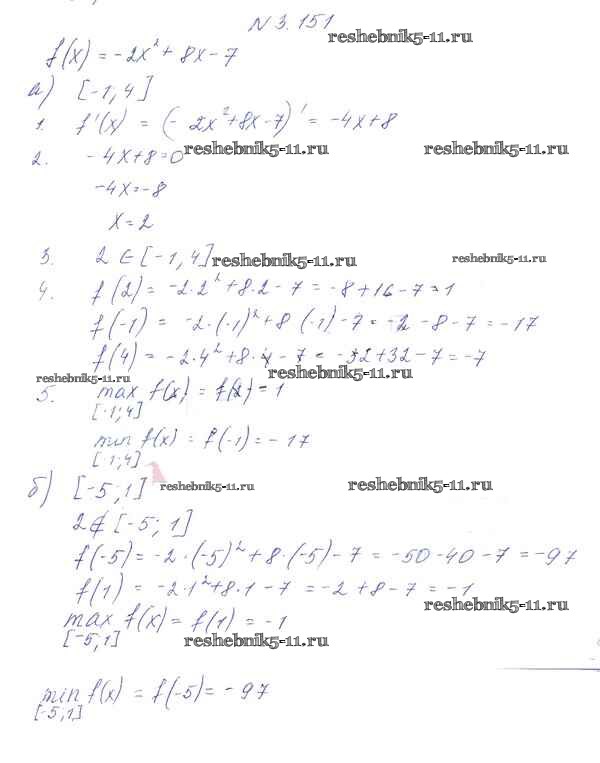 N 3.151
reshebnik5-11.ru
f(x) = -2x² + 8x - 7
а) [-1; 4]
1. f'(x) = (-2x²+8x-7)' = -4x+8
2. -4x+8=0 reshebnik5-11.ru reshebnik5-11.ru
-4x=-8
x=2
3. 2 ∈ [-1, 4] reshebnik5-11.ru reshebnik5-11.ru
4. f(2) = -2·2²+8·2-7 = -8+16-7=1
f(-1) = -2·(-1)²+8·(-1)-7 = -2-8-7 = -17
f(4) = -2·4²+8·4-7 = -32+32-7 = -7
reshebnik5-11.ru reshebnik5-11.ru
5. max f(x) = f(2) = 1
[-1;4]
min f(x) = f(-1) = -17
[-1;4]
б) [-5;1] reshebnik5-11.ru reshebnik5-11.ru
2∉[-5; 1]
f(-5) = -2·(-5)²+8·(-5)-7 = -50-40-7 = -97
f(1) = -2·1²+8·1-7 = -2+8-7 = -1
reshebnik5-11.ru
max f(x) = f(1) = -1
[-5;1] reshebnik5-11.ru
min f(x) = f(-5) = -97
[-5;1]